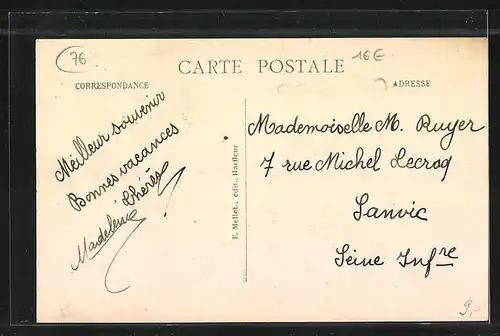 76
16€
CARTE POSTALE
CORRESPONDANCE
ADRESSE
Meilleur souvenir
Bonnes vacances
Madeleine
E. Mellet, édit., Harfleur
Mademoiselle M. Ruyer
7 rue Michel Lecroq
Sanvic
Seine Infre
9,-